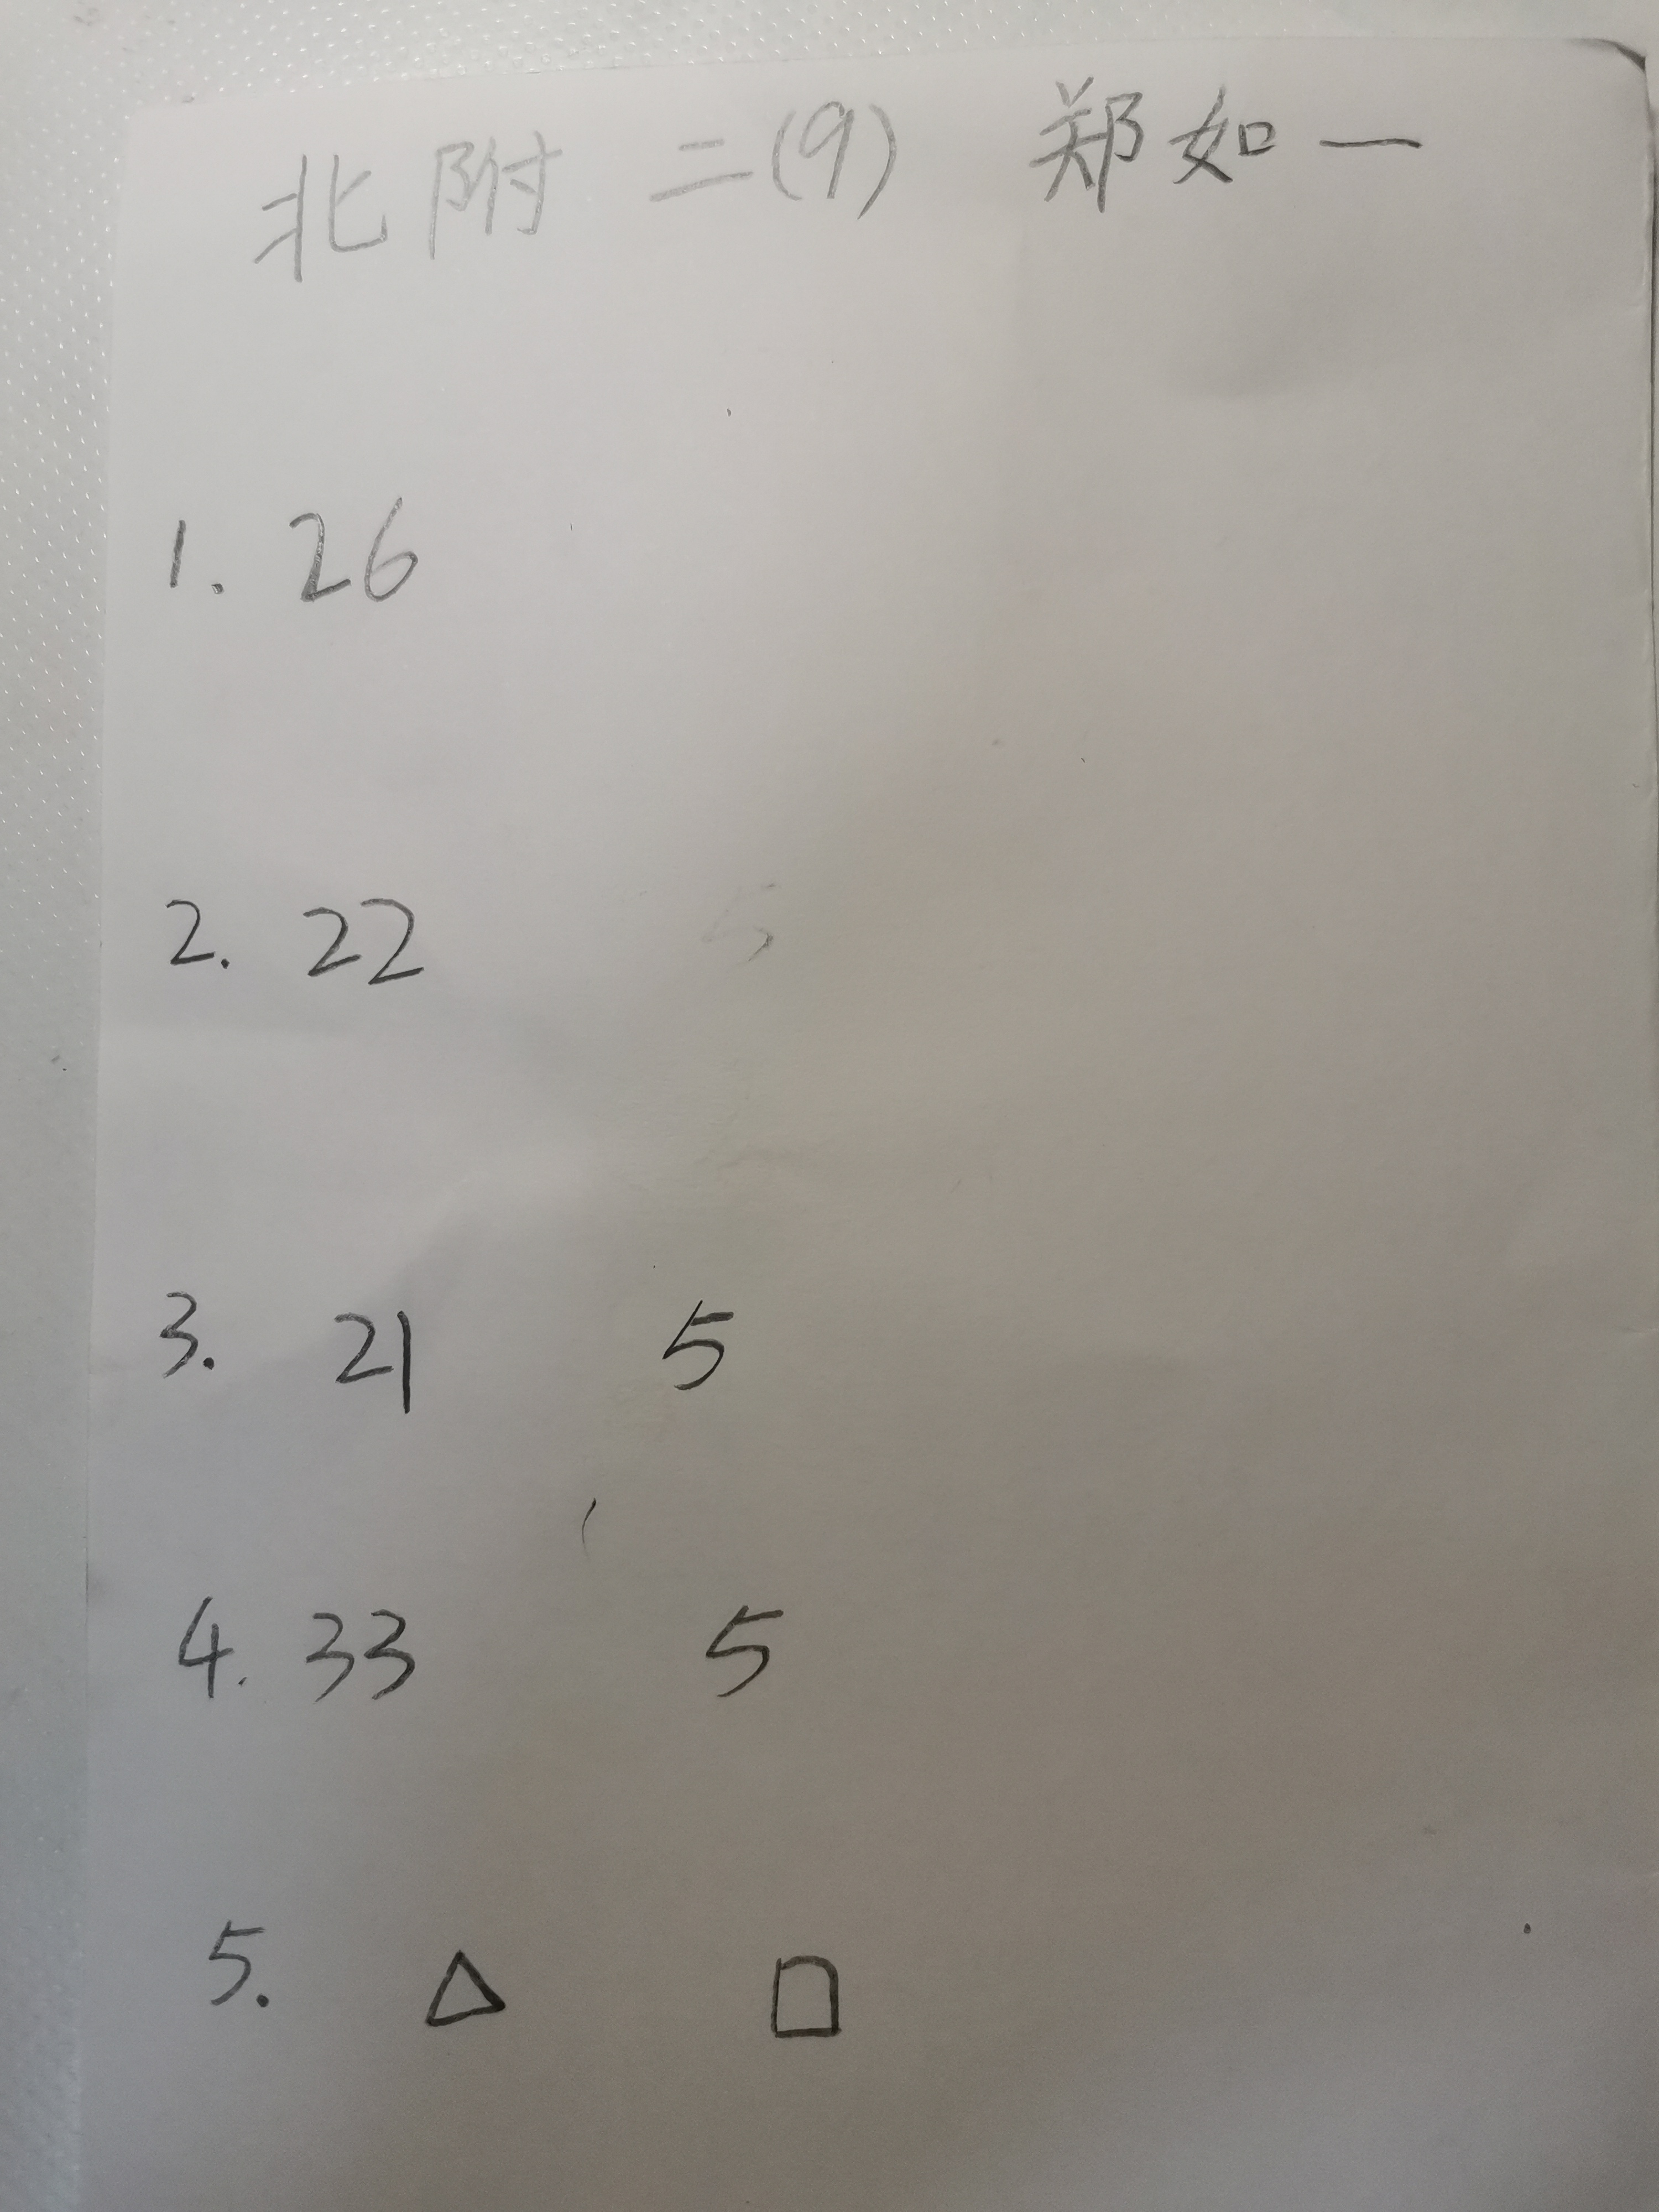 北附 二(9) 郑如一
1. 26
2. 22
3. 21 5
4. 33 5
5. △ □